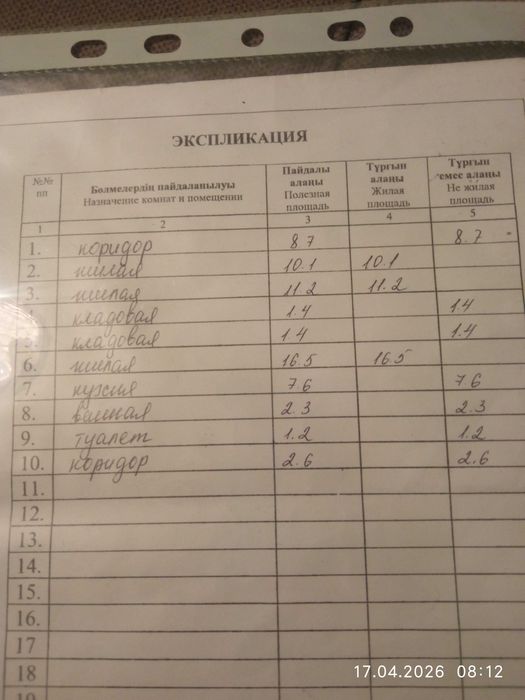 ЭКСПЛИКАЦИЯ
№№ пп | Бөлмелердің пайдаланылуы Назначение комнат и помещении | Пайдалы алаңы Полезная площадь | Тұрғын алаңы Жилая площадь | Тұрғын емес алаңы Не жилая площадь
1 2 3 4 5
1. коридор 8.7 8.7
2. жилая 10.1 10.1
3. жилая 11.2 11.2
4. кладовая 1.4 1.4
5. кладовая 1.4 1.4
6. жилая 16.5 16.5
7. кухня 7.6 7.6
8. ванная 2.3 2.3
9. туалет 1.2 1.2
10. коридор 2.6 2.6
11.
12.
13.
14.
15.
16.
17
18
19
17.04.2026 08:12